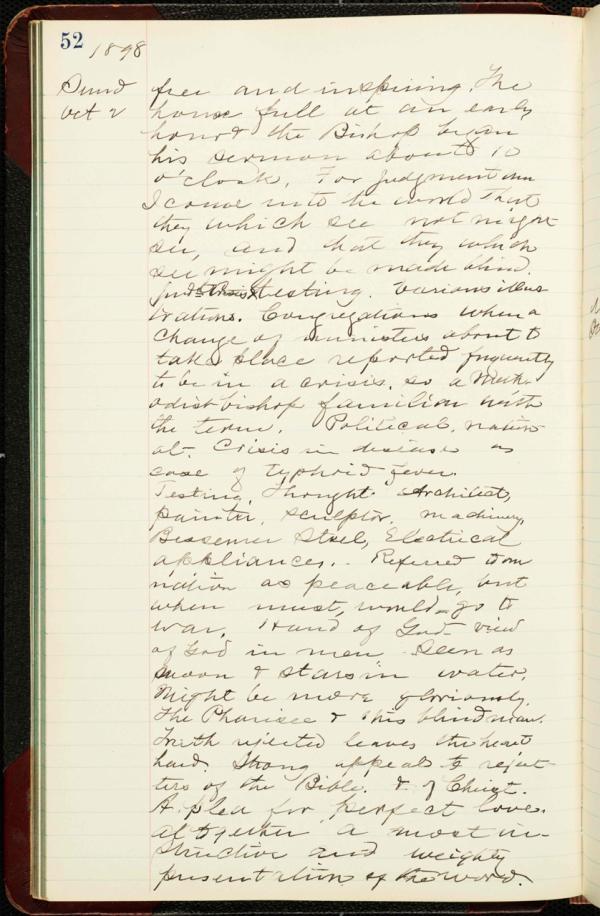 52 1898
Sund free and inspiring. The
Oct 2 house full at an early
hour & the Bishop began
his sermon about 10
o'clock. For judgment am
I come into the world that
they which see not might
see, and that they which
see might be made blind.
testing. Various illus
trations. Congregations when a
change of ministers about to
take place reported frequently
to be in a crisis, so a Meth-
odist bishop familiar with
the term. Political, nation
al. Crisis in disease as
case of typhoid fever.
Testing, Thought. Architect,
painter, sculptor, machinery,
Bessemer Steel, Electrical
appliances. Referred to our
nation as peaceable, but
when must, would go to
war. Hand of God - view
of God in men. Seen as
moon & stars in water,
Might be more gloriously.
The Pharisee & this blind man.
Truth rejected leaves the heart
hard. Strong appeals to rejec-
ters of the Bible. & of Christ.
A plea for perfect love.
altogether a most in-
structive and weighty
presentation of the word.